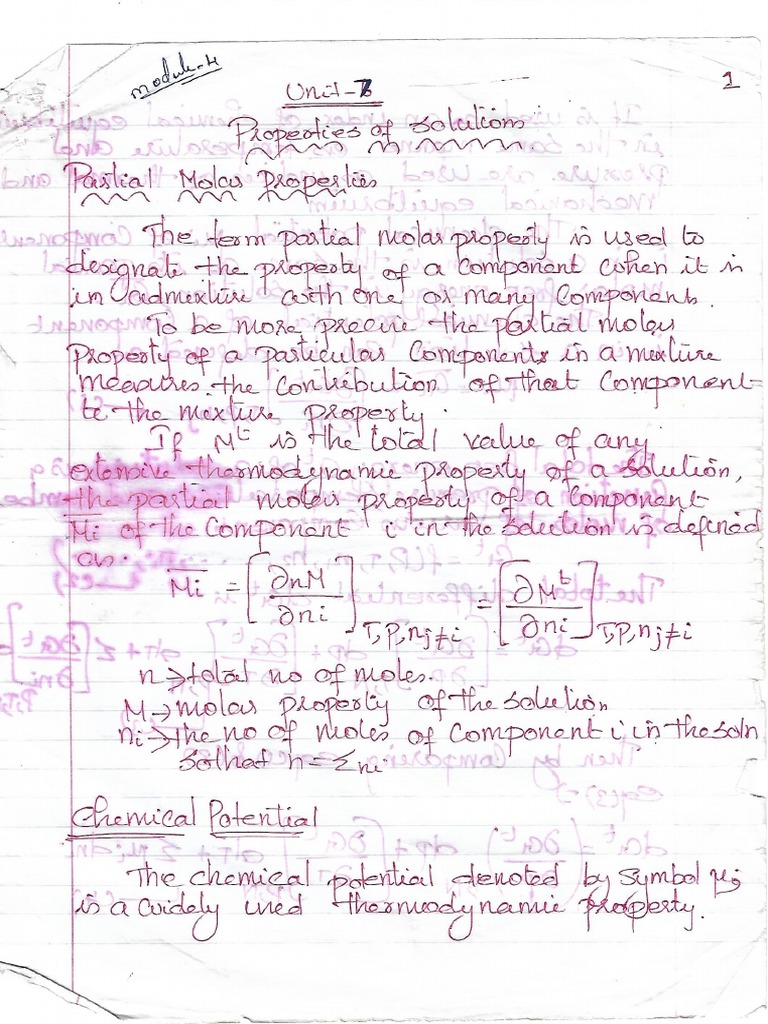 module-4
Unit-7
1
Properties of Solutions
Partial Molar Properties
The term partial molar property is used to
designate the property of a component when it is
in admixture with one or many component.
To be more precise the partial molar
property of a particular components in a mixture
measures the contribution of that component
to the mixture property.
If Mᵗ is the total value of any
extensive thermodynamic property of a solution,
the partial molar property of a component
Mi of the component i in the solution is defined
as.
M̄i = [∂nM/∂ni]T,P,nj≠i = [∂Mᵗ/∂ni]T,P,nj≠i
n → total no of moles.
M → molar property of the solution
ni → the no of moles of component i in the soln
so that n = Σni.
Chemical Potential
The chemical potential denoted by symbol μi
is a widely used thermodynamic property.